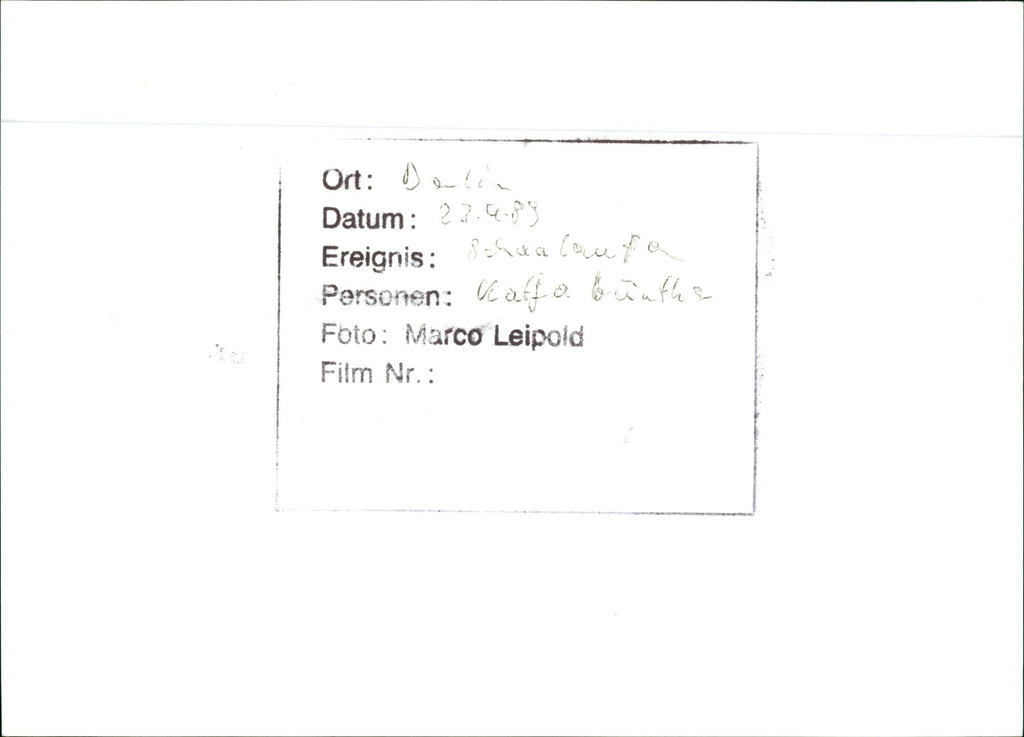 Ort: Berlin
Datum: 23.4.89
Ereignis: Schaulaufen
Personen: Katja Günther
Foto: Marco Leipold
Film Nr.: